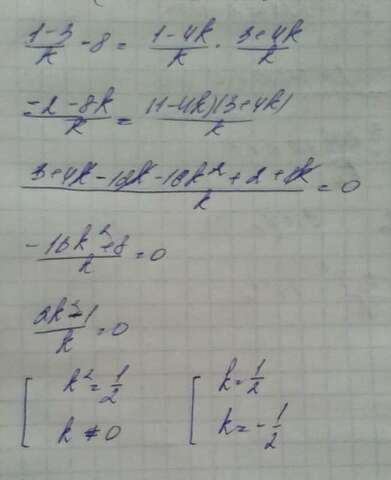 (1-3)/k - 8 = (1-4k)/k · (3+4k)/k
= (-2-8k)/k = (1-4k)(3+4k)/k
(3+4k-12k-16k²+2+8k)/k = 0
(-16k²+8)/k = 0
(2k²-1)/k = 0
[ k² = 1/2 [ k = 1/2
k ≠ 0 k = -1/2